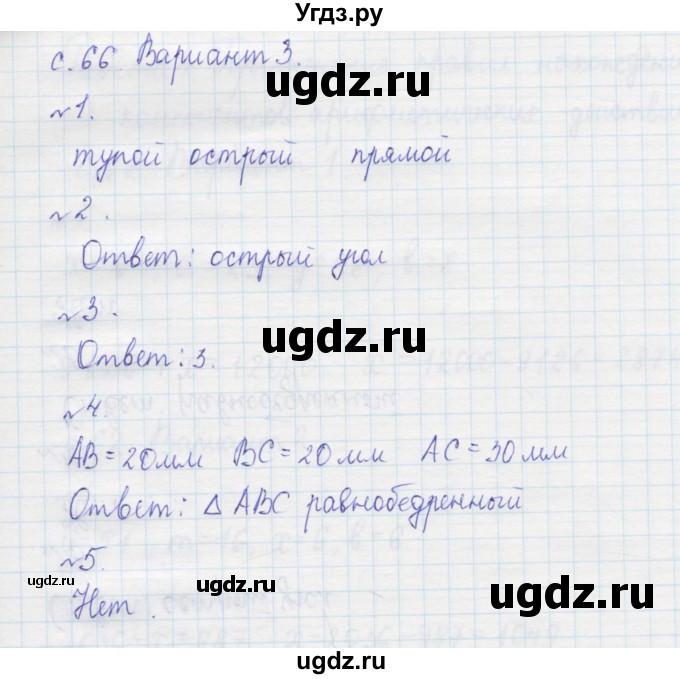 Угдз.ру
с.66. Вариант 3.
ugdz.ru
№1.
тупой острый прямой
ugdz.ru
№2.
Ответ: острый угол
№3.
ugdz.ru
Ответ: 3.
№4.
AB = 20мм BC = 20мм AC = 30мм
ugdz.ru
Ответ: △ ABC равнобедренный
№5.
ugdz.ru
ugdz.ru
ugdz.ru
Нет.
ugdz.ru